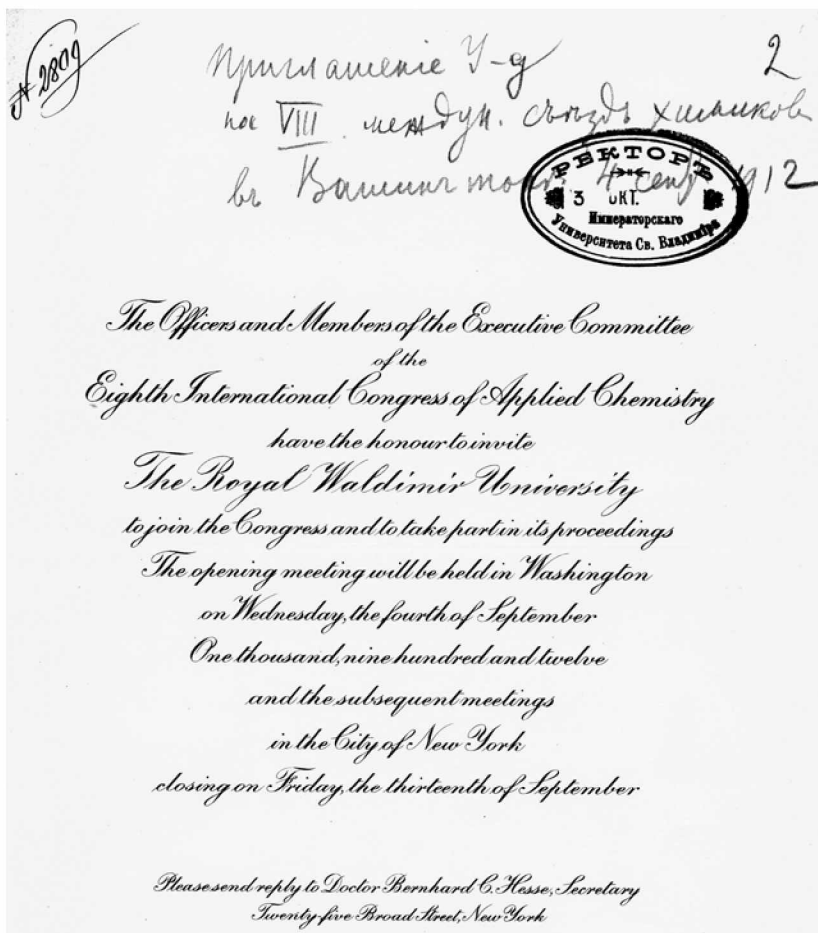 № 2809
Приглашеніе У-ҙ 2
на VIII междун. съѣздъ химиковъ
въ Вашингтонѣ 4 сент 1912
РЕКТОРЪ
3 ОКТ.
Императорскаго
Университета Св. Владиміра
The Officers and Members of the Executive Committee
of the
Eighth International Congress of Applied Chemistry
have the honour to invite
The Royal Waldimir University
to join the Congress and to take part in its proceedings
The opening meeting will be held in Washington
on Wednesday, the fourth of September
One thousand, nine hundred and twelve
and the subsequent meetings
in the City of New York
closing on Friday, the thirteenth of September
Please send reply to Doctor Bernhard C. Hesse, Secretary
Twenty-five Broad Street, New York